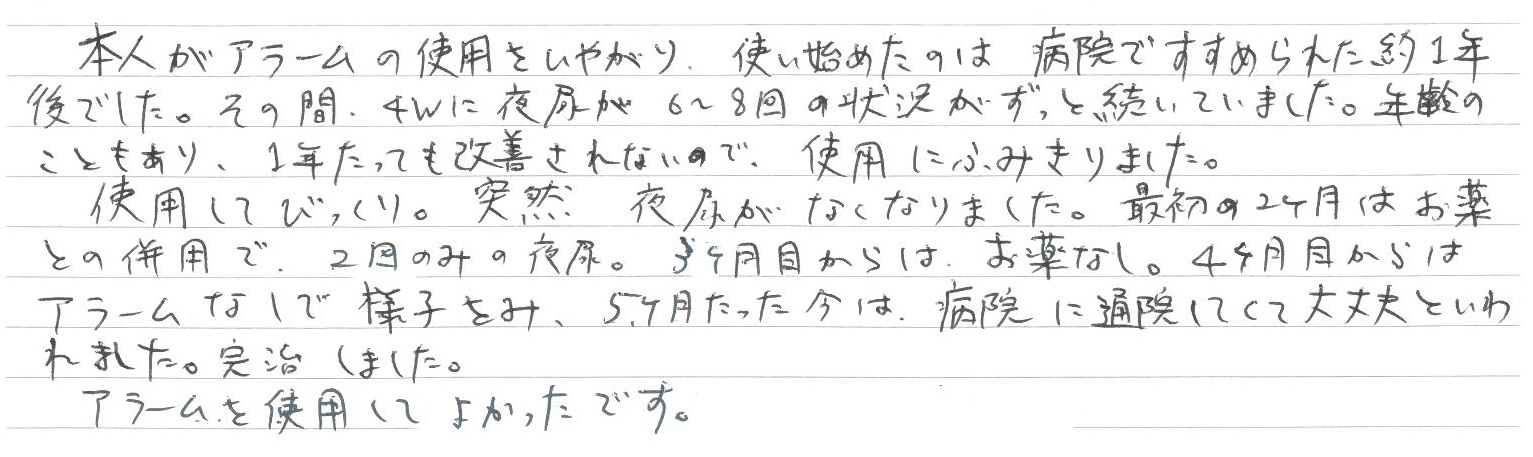 本人がアラームの使用をいやがり、使い始めたのは病院ですすめられた約1年
後でした。その間、4Wに夜尿が6～8回の状況がずっと続いていました。年齢の
こともあり、1年たっても改善されないので、使用にふみきりました。
使用してびっくり。突然夜尿がなくなりました。最初の2ヶ月はお薬
との併用で、2回のみの夜尿。3ヶ月目からは、お薬なし。4ヶ月目からは
アラームなしで様子をみ、5ヶ月たった今は、病院に通院してくて大丈夫といわ
れました。完治しました。
アラームを使用してよかったです。